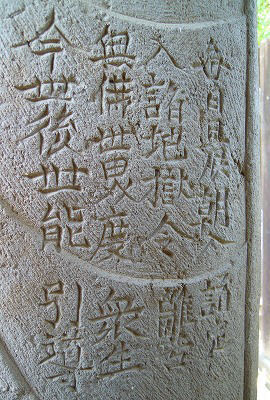 每日晨朝入諸定
入諸地獄令離苦
無佛世界度衆生
今世後世能引導